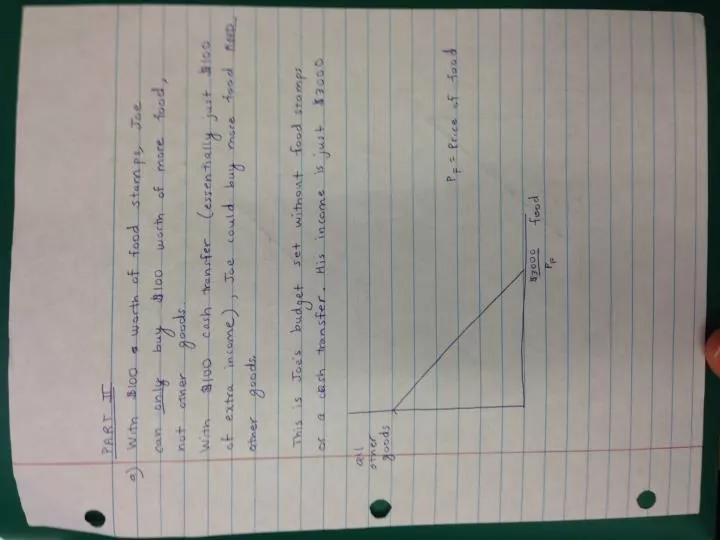 PART II
a) With $100 worth of food stamps, Joe
can only buy $100 worth of more food,
not other goods.
With $100 cash transfer (essentially just $100
of extra income), Joe could buy more food
other goods.
This is Joe's budget set without food stamps
or a cash transfer. His income is just $3000
all
other
goods
P_F = Price of food
$3000
P_F
food